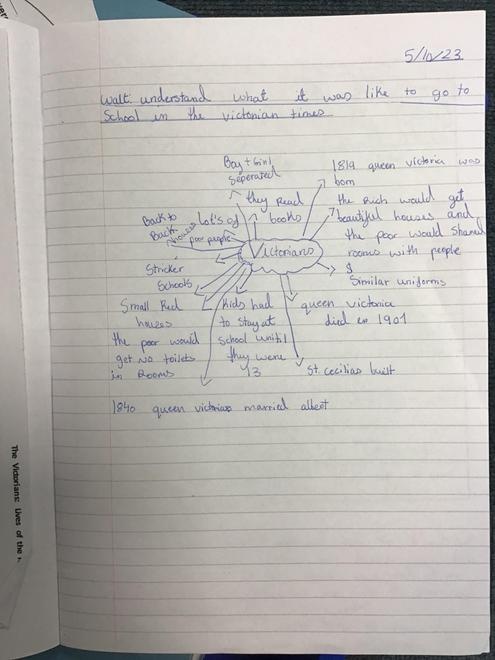 5/10/23
Walt: understand what it was like to go to
School in the victorian times
Boy + Girl
seperated
they Read
books
1819 queen victoria was
born
the Rich would get
beautiful houses and
the poor would Shared
rooms with people
Back to
Back
houses
Lot's of
poor people
Victorians
Similar uniforms
Stricker
Schools
Small Red
houses
Kids had
to stay at
school until
they were
13
queen victoria
died in 1901
the poor would
get No toilets
in Rooms
St. cecilias built
1840 queen victorias married albert
The Victorians: Lives of the